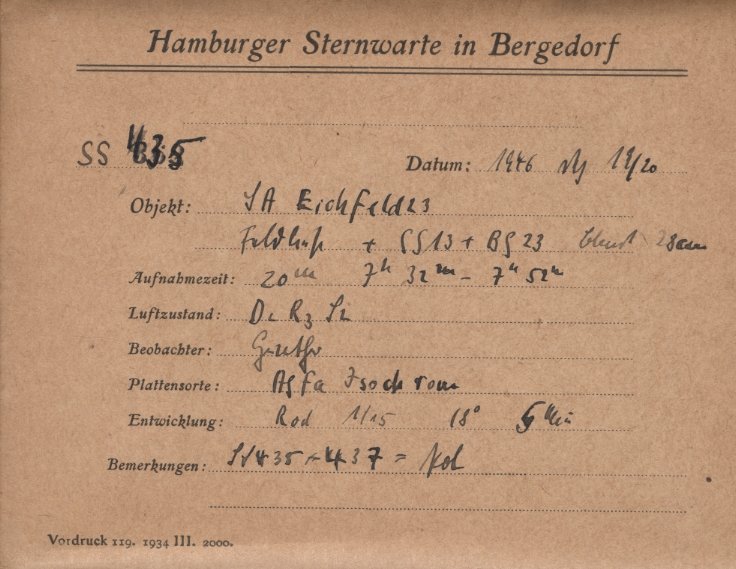 Hamburger Sternwarte in Bergedorf
SS 435
Datum: 1946 19/20
Objekt: SA Eichfeld 23
+ GG13 + BG 23 28cm
Aufnahmezeit: 20m 7h 32m – 7h 52m
Luftzustand: D2 R3 S2
Beobachter:
Plattensorte: Agfa Isochrom
Entwicklung: Rod 1/15 18° 5 Min
Bemerkungen: 435 – 437 =
Vordruck 119. 1934 III. 2000.